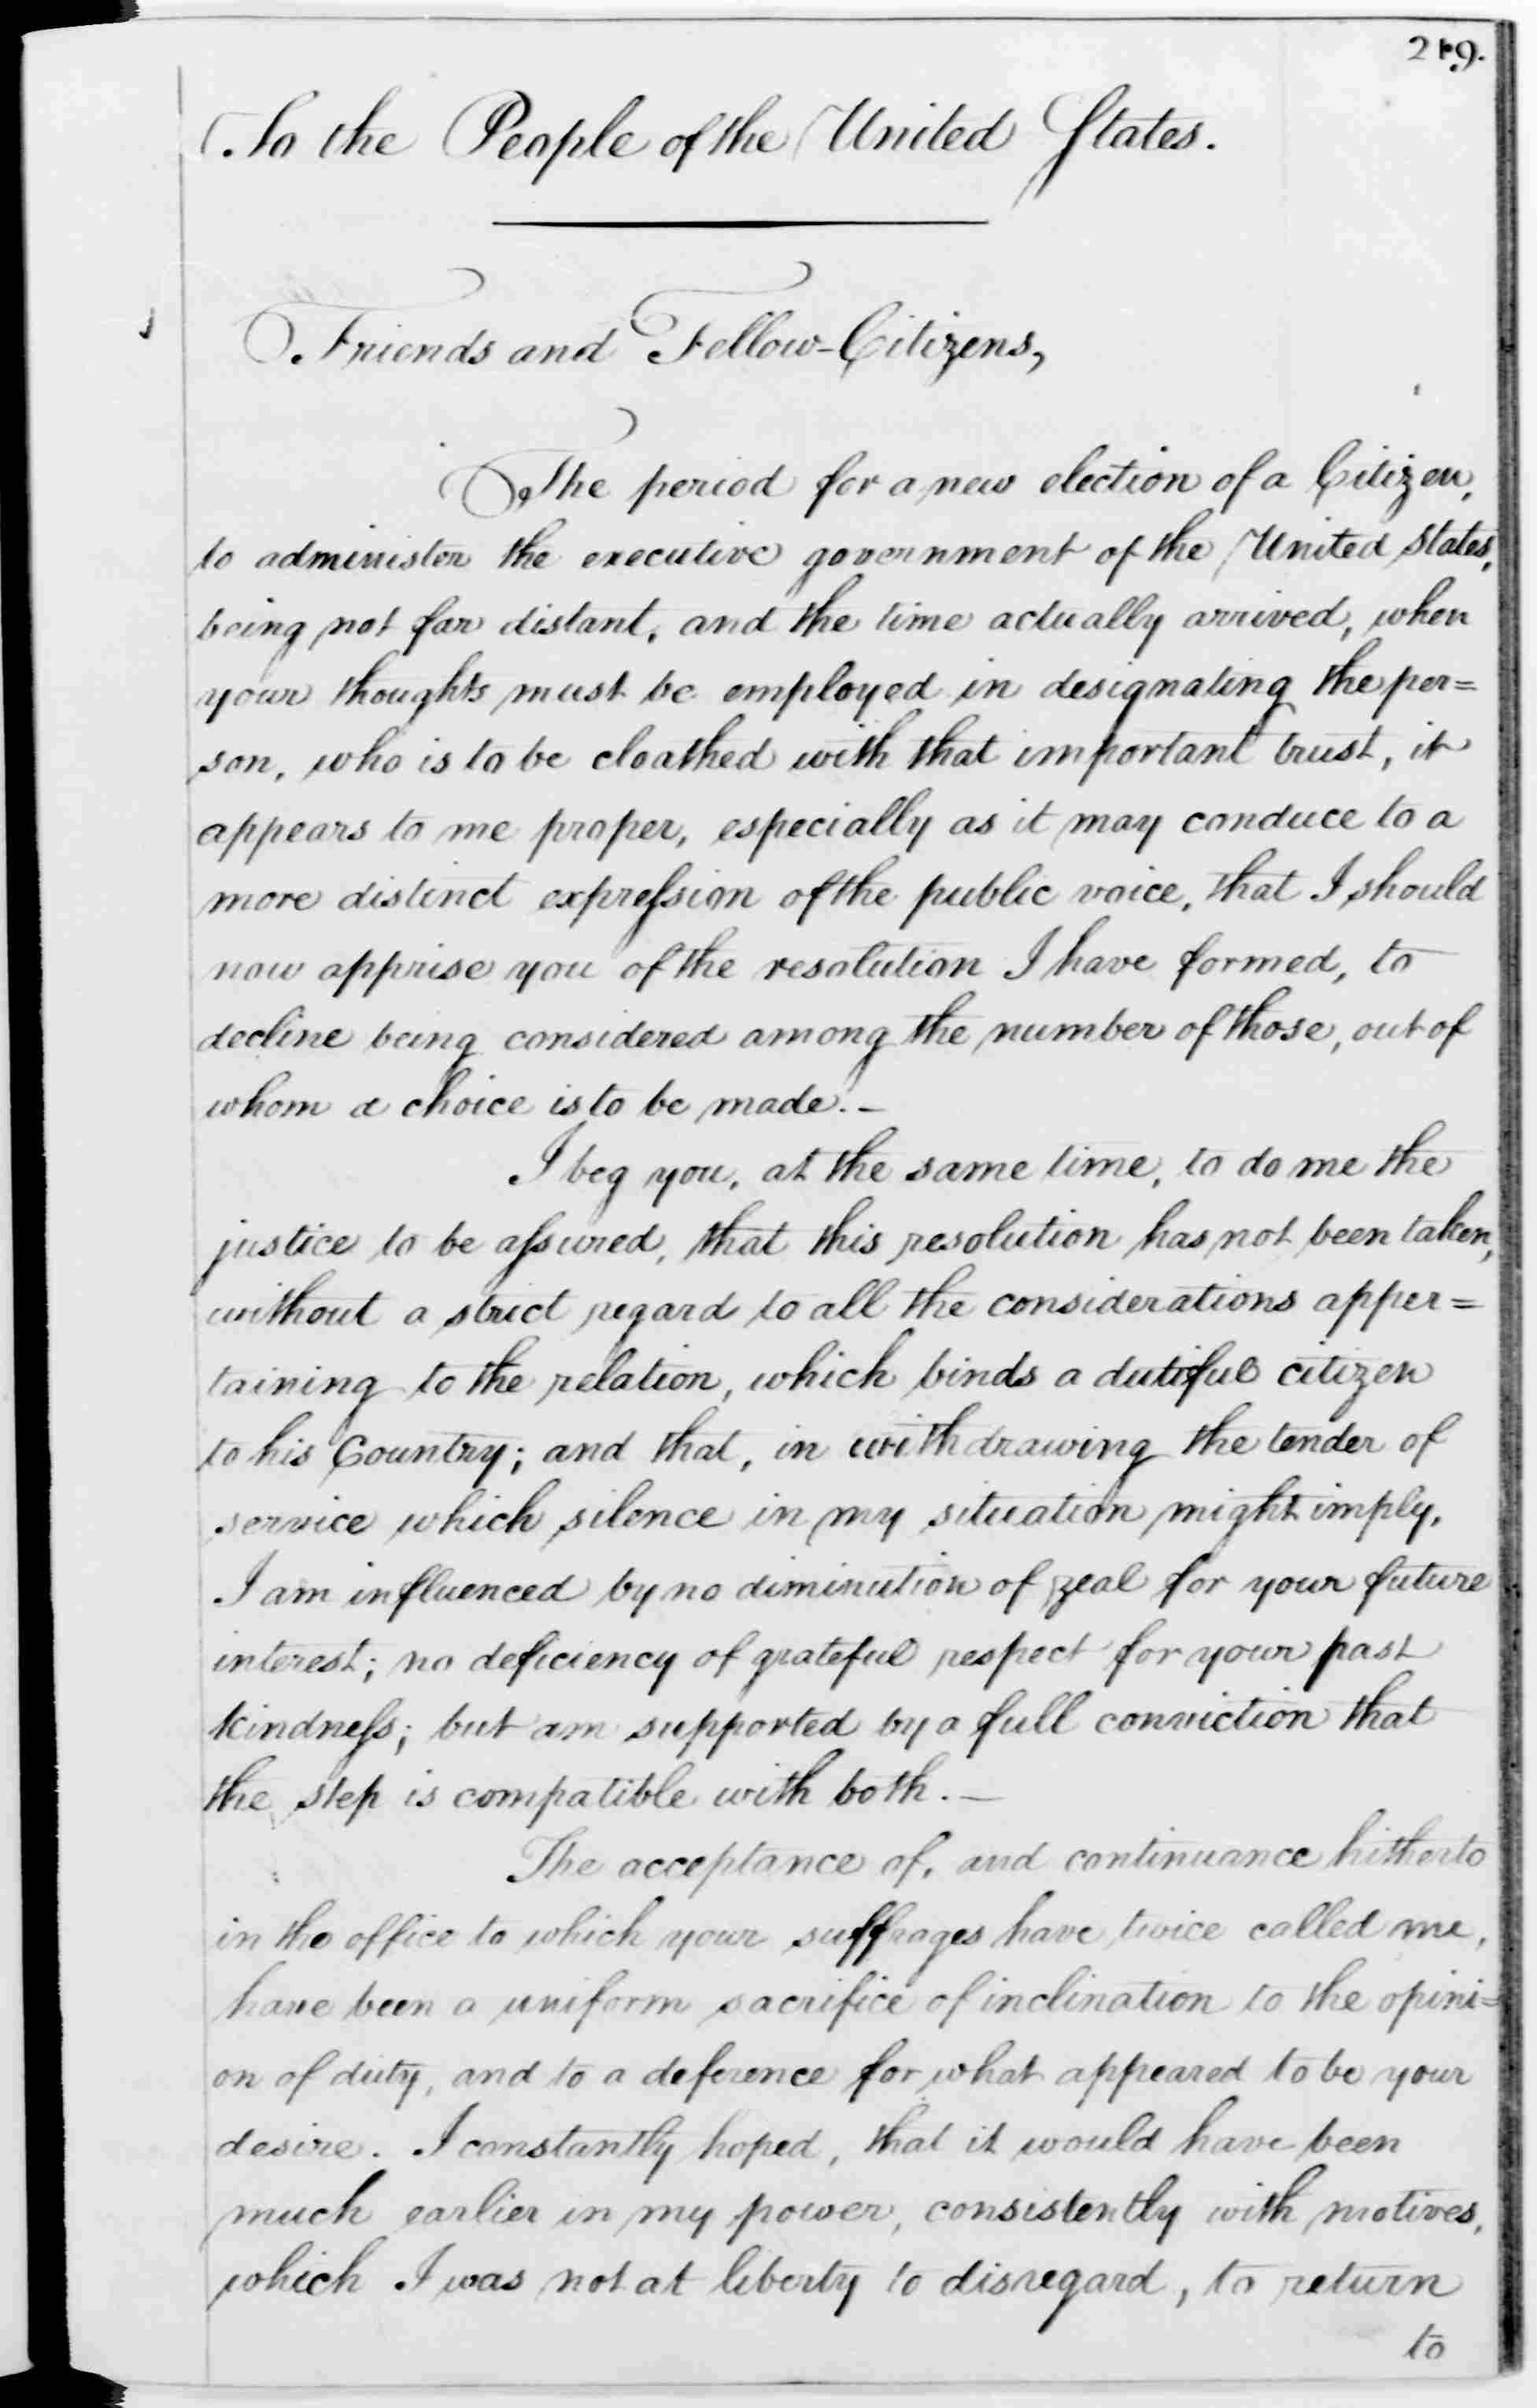 219.
To the People of the United States.
Friends and Fellow-Citizens,
The period for a new election of a Citizen,
to administer the executive government of the United States,
being not far distant, and the time actually arrived, when
your thoughts must be employed in designating the per=
son, who is to be cloathed with that important trust, it
appears to me proper, especially as it may conduce to a
more distinct expreſsion of the public voice, that I should
now apprise you of the resolution I have formed, to
decline being considered among the number of those, out of
whom a choice is to be made.—
I beg you, at the same time, to do me the
justice to be aſsured, that this resolution has not been taken,
without a strict regard to all the considerations apper=
taining to the relation, which binds a dutiful citizen
to his Country; and that, in withdrawing the tender of
service which silence in my situation might imply,
I am influenced by no diminution of zeal for your future
interest; no deficiency of grateful respect for your past
kindneſs; but am supported by a full conviction that
the step is compatible with both.—
The acceptance of, and continuance hitherto
in the office to which your suffrages have twice called me,
have been a uniform sacrifice of inclination to the opini=
on of duty, and to a deference for what appeared to be your
desire. I constantly hoped, that it would have been
much earlier in my power, consistently with motives,
which I was not at liberty to disregard, to return
to